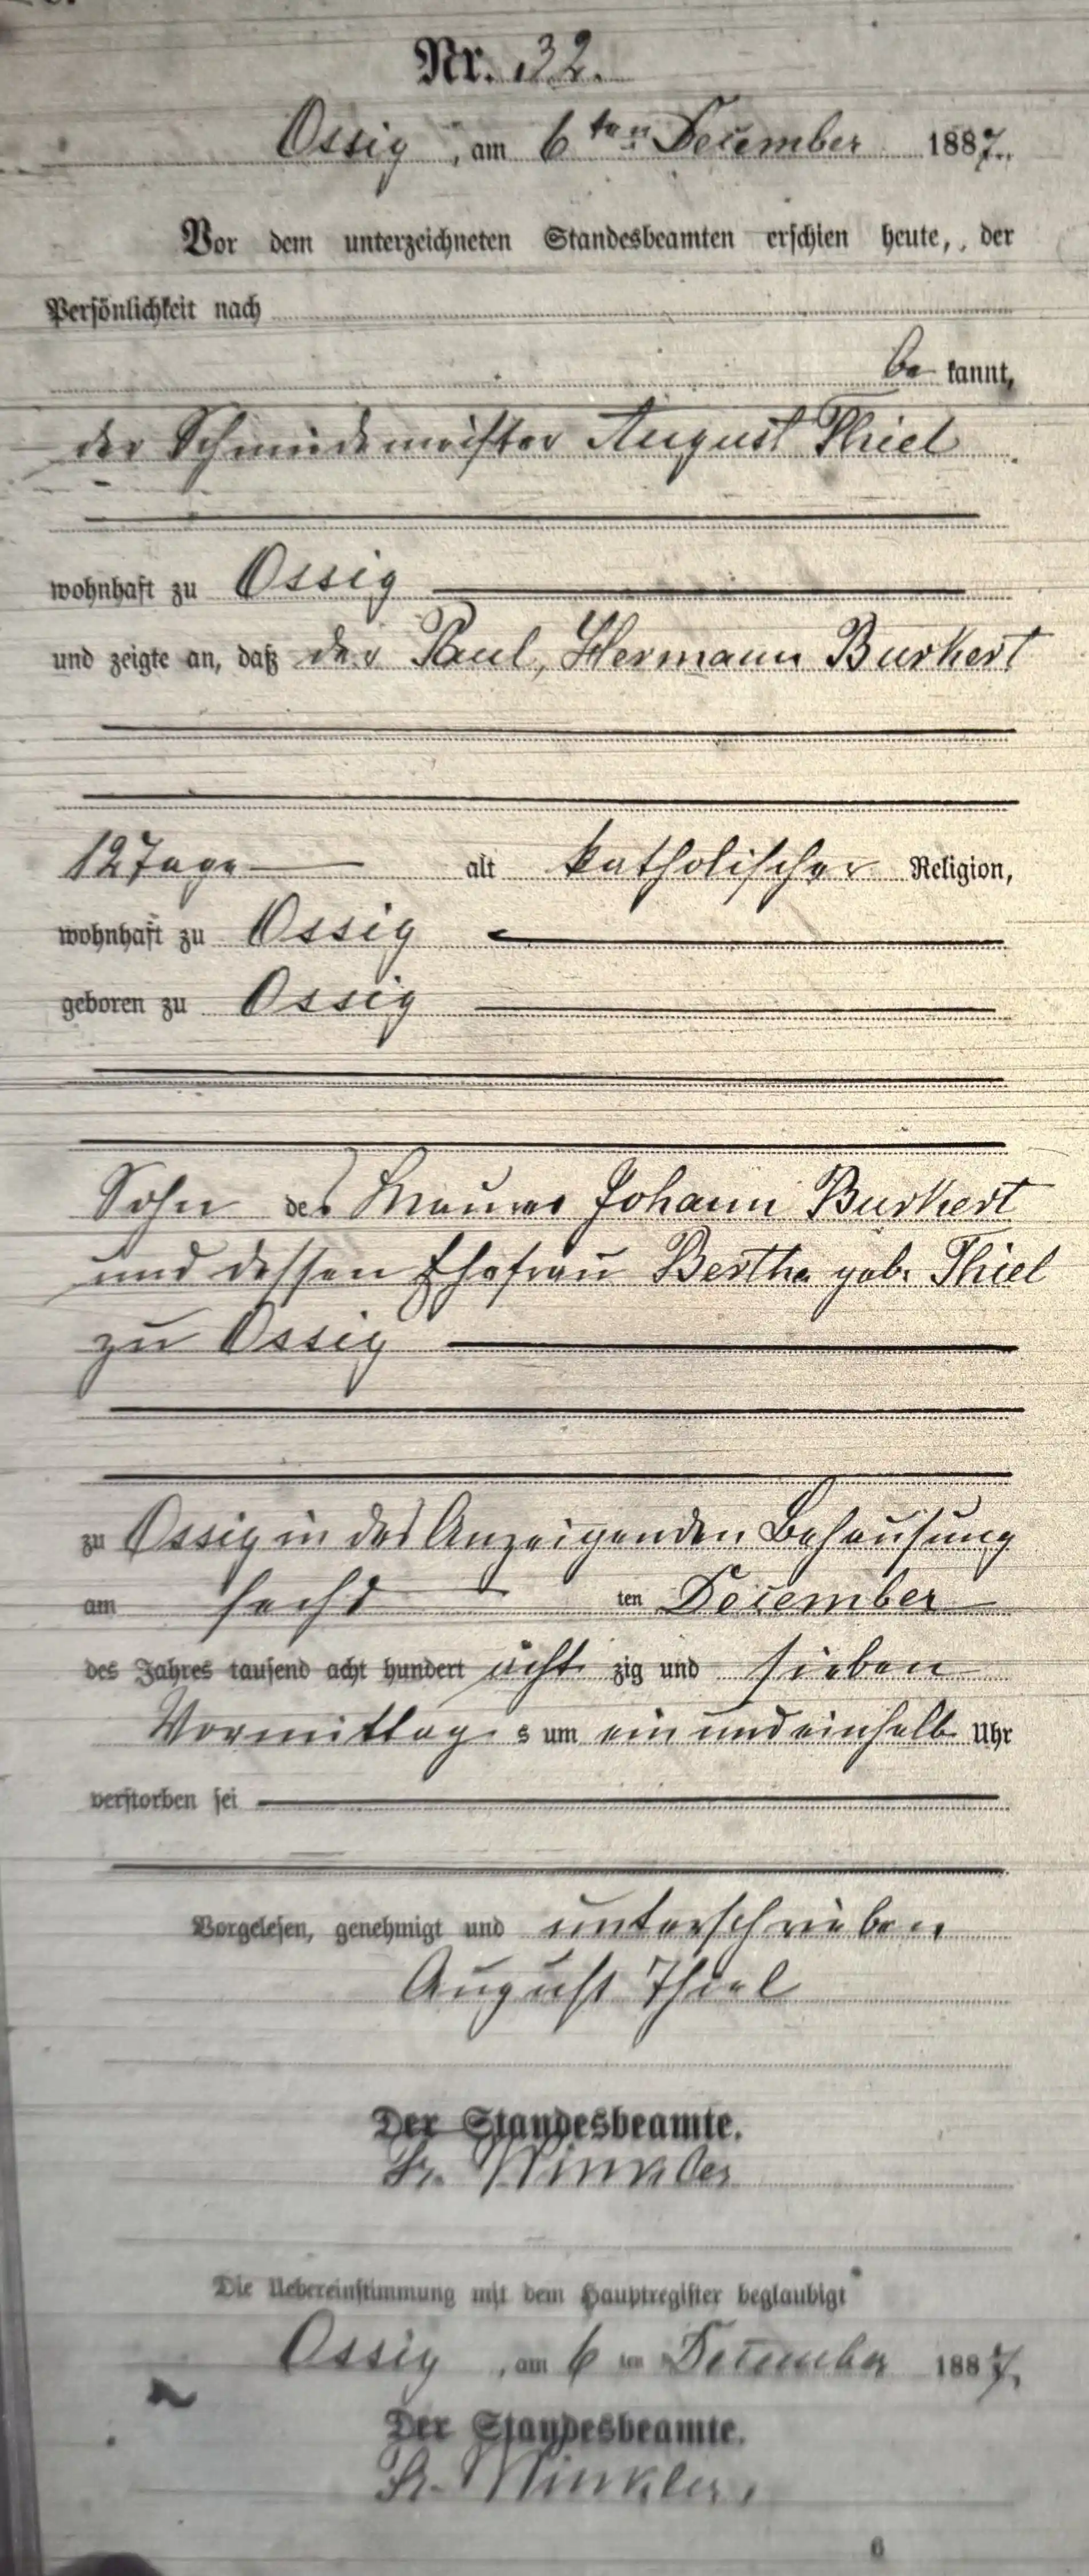 Nr. 32.
Ossig, am 6ten December 1887.
Vor dem unterzeichneten Standesbeamten erschien heute, der
Persönlichkeit nach
be kannt,
der Schmiedemeister August Thiel
wohnhaft zu Ossig
und zeigte an, daß der Paul, Hermann Burkert
12 Tage alt katholischer Religion,
wohnhaft zu Ossig
geboren zu Ossig
Sohn des Maurers Johann Burkert
und dessen Ehefrau Bertha geb. Thiel
zu Ossig
zu Ossig in des Anzeigenden Behausung
am sechs ten December
des Jahres tausend acht hundert acht zig und sieben
Vormittag s um ein und einhalb Uhr
verstorben sei
Vorgelesen, genehmigt und unterschrieben
August Thiel
Der Standesbeamte.
Winkler
Die Uebereinstimmung mit dem Hauptregister beglaubigt
Ossig, am 6 ten December 1887.
Der Standesbeamte.
Winkler.
6